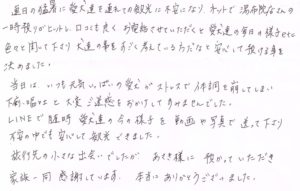 連日の猛暑に愛犬達を連れての観光に不安になり、ネットで湯布院なさんの
一時預りがヒットし、口コミも良く お電話させていただくと愛犬の毎日の様子etc
色々と聞いて下さり 犬達の事をすごく考えている方だなと安心して預ける事を
決めました。
当日は、いつも元気いっぱいの愛犬がストレスで体調を崩してしまい
下痢、嘔吐をし 大変ご迷惑をおかけしてすみませんでした。
LINEで随時 愛犬達の今の様子を動画や写真で送って下さり
不安の中でも安心して観光できました。
旅行先の小さな出会いでしたが あさぎ様に預かっていただき
家族一同 感謝しています。 本当にありがとうございました。